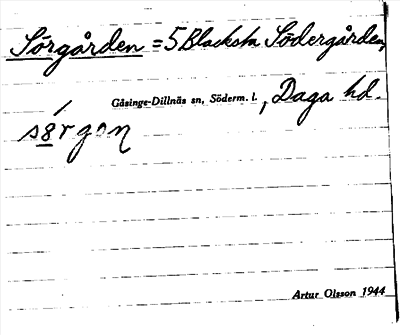 Sörgården = 5 Blacksta Södergården,
Gåsinge-Dillnäs sn, Söderm. l., Daga hd.
Artur Olsson 1944